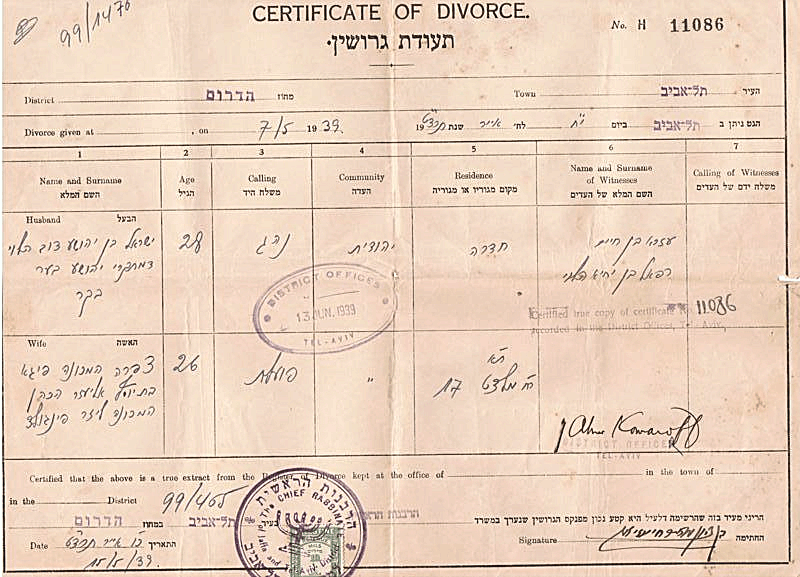 99/1476
CERTIFICATE OF DIVORCE.
No. H 11086
תעודת גרושין.
District הדרום מחוז Town תל-אביב העיר
Divorce given at , on 7/5 1939 שנת תרצ"ט אייר לח' י"ח ביום תל-אביב הגט ניתן ב
1 2 3 4 5 6 7
Name and Surname
השם המלא
Age
הגיל
Calling
משלח היד
Community
העדה
Residence
מקום מגוריו או מגוריה
Name and Surname
of Witnesses
השם המלא של העדים
Calling of Witnesses
משלח ידם של העדים
Husband הבעל
ישראל בן יהושע דוב הלוי
יהושע בער
בקר
28
נהג
יהודית
חדרה
עזרא בן חיים
רפאל בן יחיא הלוי
DISTRICT OFFICES
13 JUN. 1939
TEL-AVIV
Certified true copy of certificate No. 11086
recorded in the District Offices, Tel Aviv.
Wife האשה
צפרה המכונה פיגא
אליעזר הכהן
המכונה ליזר פינגולד
26
פועלת
"
תא
17
DISTRICT OFFICER
TEL-AVIV
Certified that the above is a true extract from the Register of Divorce kept at the office of in the town of
in the District 99/465
הריני מעיד בזה שהרשימה דלעיל היא קטע נכון מפנקס הגרושין שנערך במשרד הרבנות הראשית
בעיר תל-אביב במחוז הדרום
הרבנות הראשית
THE CHIEF RABBINATE
Date אייר תרצ"ט התאריך
Signature החתימה